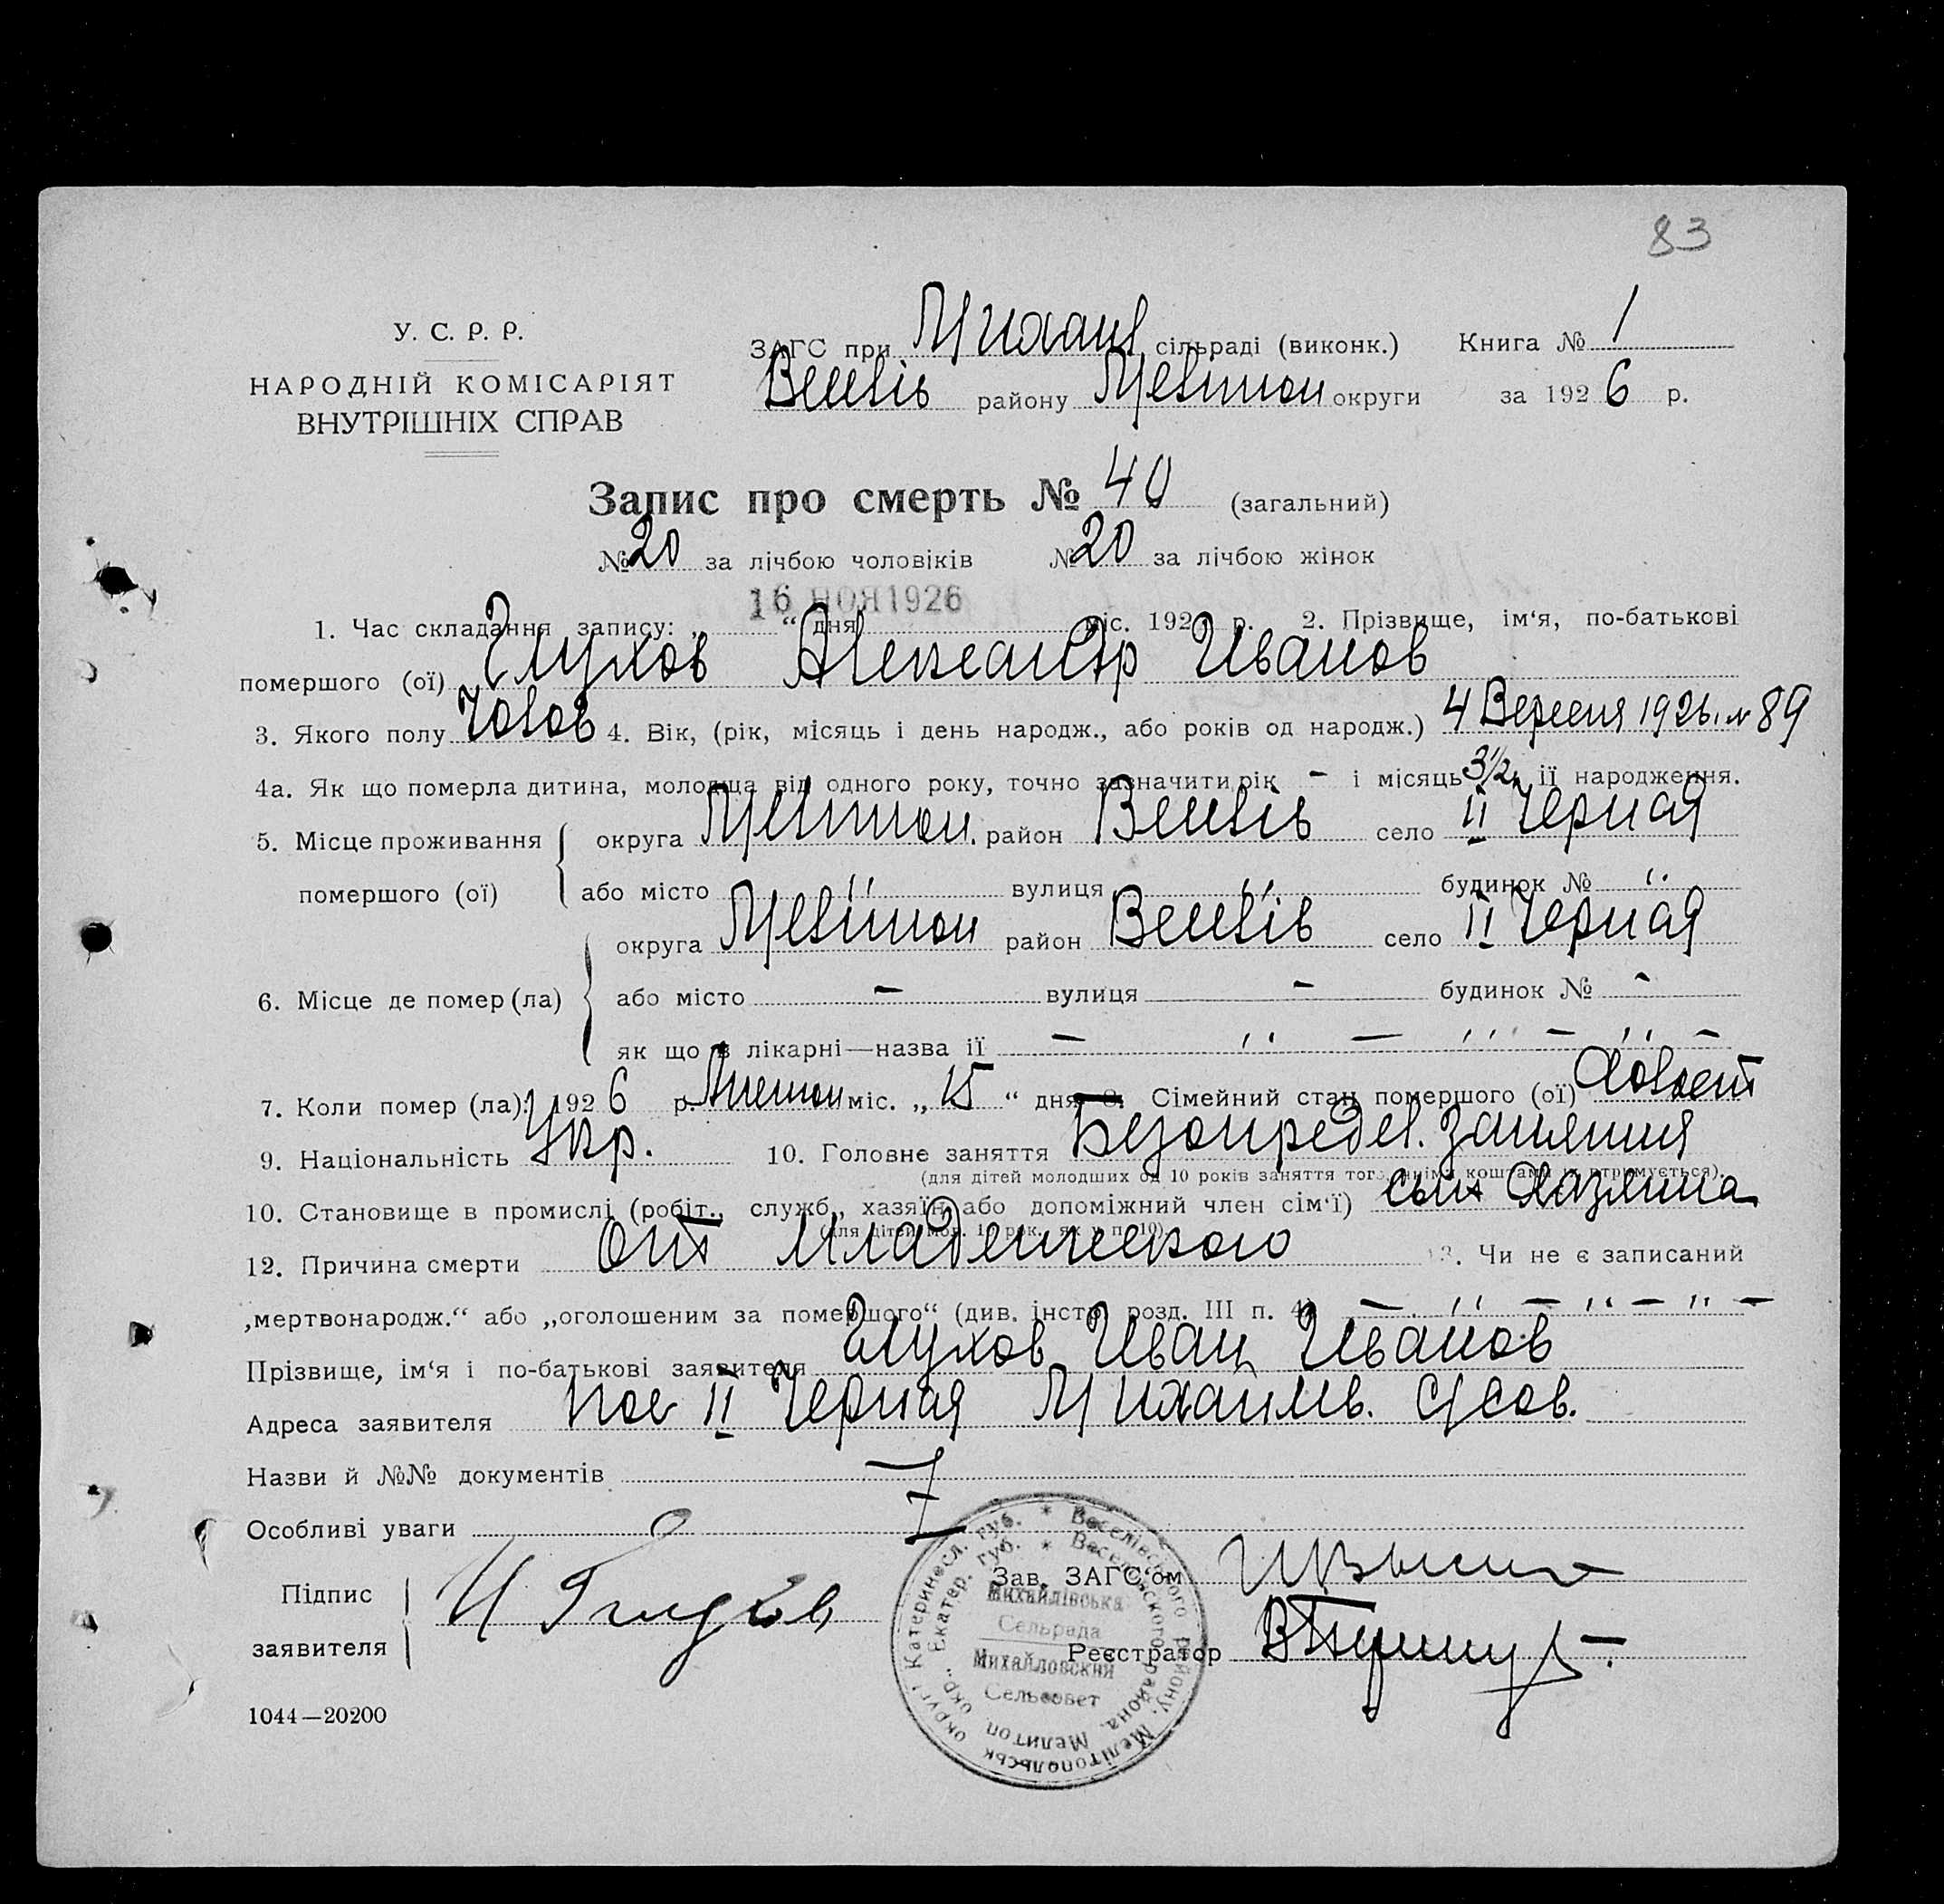 83
У. С. Р. Р.
НАРОДНІЙ КОМІСАРІЯТ
ВНУТРІШНІХ СПРАВ
ЗАГС при Михаил сільраді (виконк.) Книга № 1
Веселів району Мелітоп округи за 1926 р.
Запис про смерть № 40 (загальний)
№ 20 за лічбою чоловіків № 20 за лічбою жінок
16 НОЯ 1926
1. Час складання запису: „ “ дня міс. 192 р. 2. Прізвище, ім‘я, по-батькові
помершого (ої) Глухов Александр Иванов
3. Якого полу Чолов 4. Вік, (рік, місяць і день народж., або років од народж.) 4 Вересня 1926. № 89
4а. Як що померла дитина, молодща від одного року, точно зазначити рік - і місяць 3½ її народження.
5. Місце проживання помершого (ої) округа Мелітоп. район Веселів село ІІ Черная
або місто " вулиця " будинок № "
6. Місце де помер (ла) округа Мелітоп район Веселів село ІІ Черная
або місто - вулиця - будинок № -
як що в лікарні—назва її — " — " — " —
7. Коли помер (ла): 1926 р. міс. „15“ дня 8. Сімейний стан помершого (ої) Холост
9. Національність Укр. 10. Головне заняття Безопредел. занятия
(для дітей молодших од 10 років заняття того, чиїми коштами їх втримується).
10. Становище в промислі (робіт., служб., хазяїн або допоміжний член сім‘ї) сын Хазяина
(для дітей мол. 10 рок. як у п. 10)
12. Причина смерти От Младенческого 13. Чи не є записаний
„мертвонародж.“ або „оголошеним за помершого“ (див. інстр. розд. III п. 4) — " — " — " —
Прізвище, ім‘я і по-батькові заявителя Глухов Иван Иванов
Адреса заявителя пос ІІ Черная Михайлів.
Назви й №№ документів
Особливі уваги
Підпис заявителя И Глухов
Зав. ЗАГС‘ом
Реєстратор
Катеринесл. губ. * Веселівського району, Мелітопольськ округ
Екатер. губ. * Веселовского района, Мелитоп. окр.
Михайлівська
Сельрада
Михайловский
Сельсовет
1044—20200